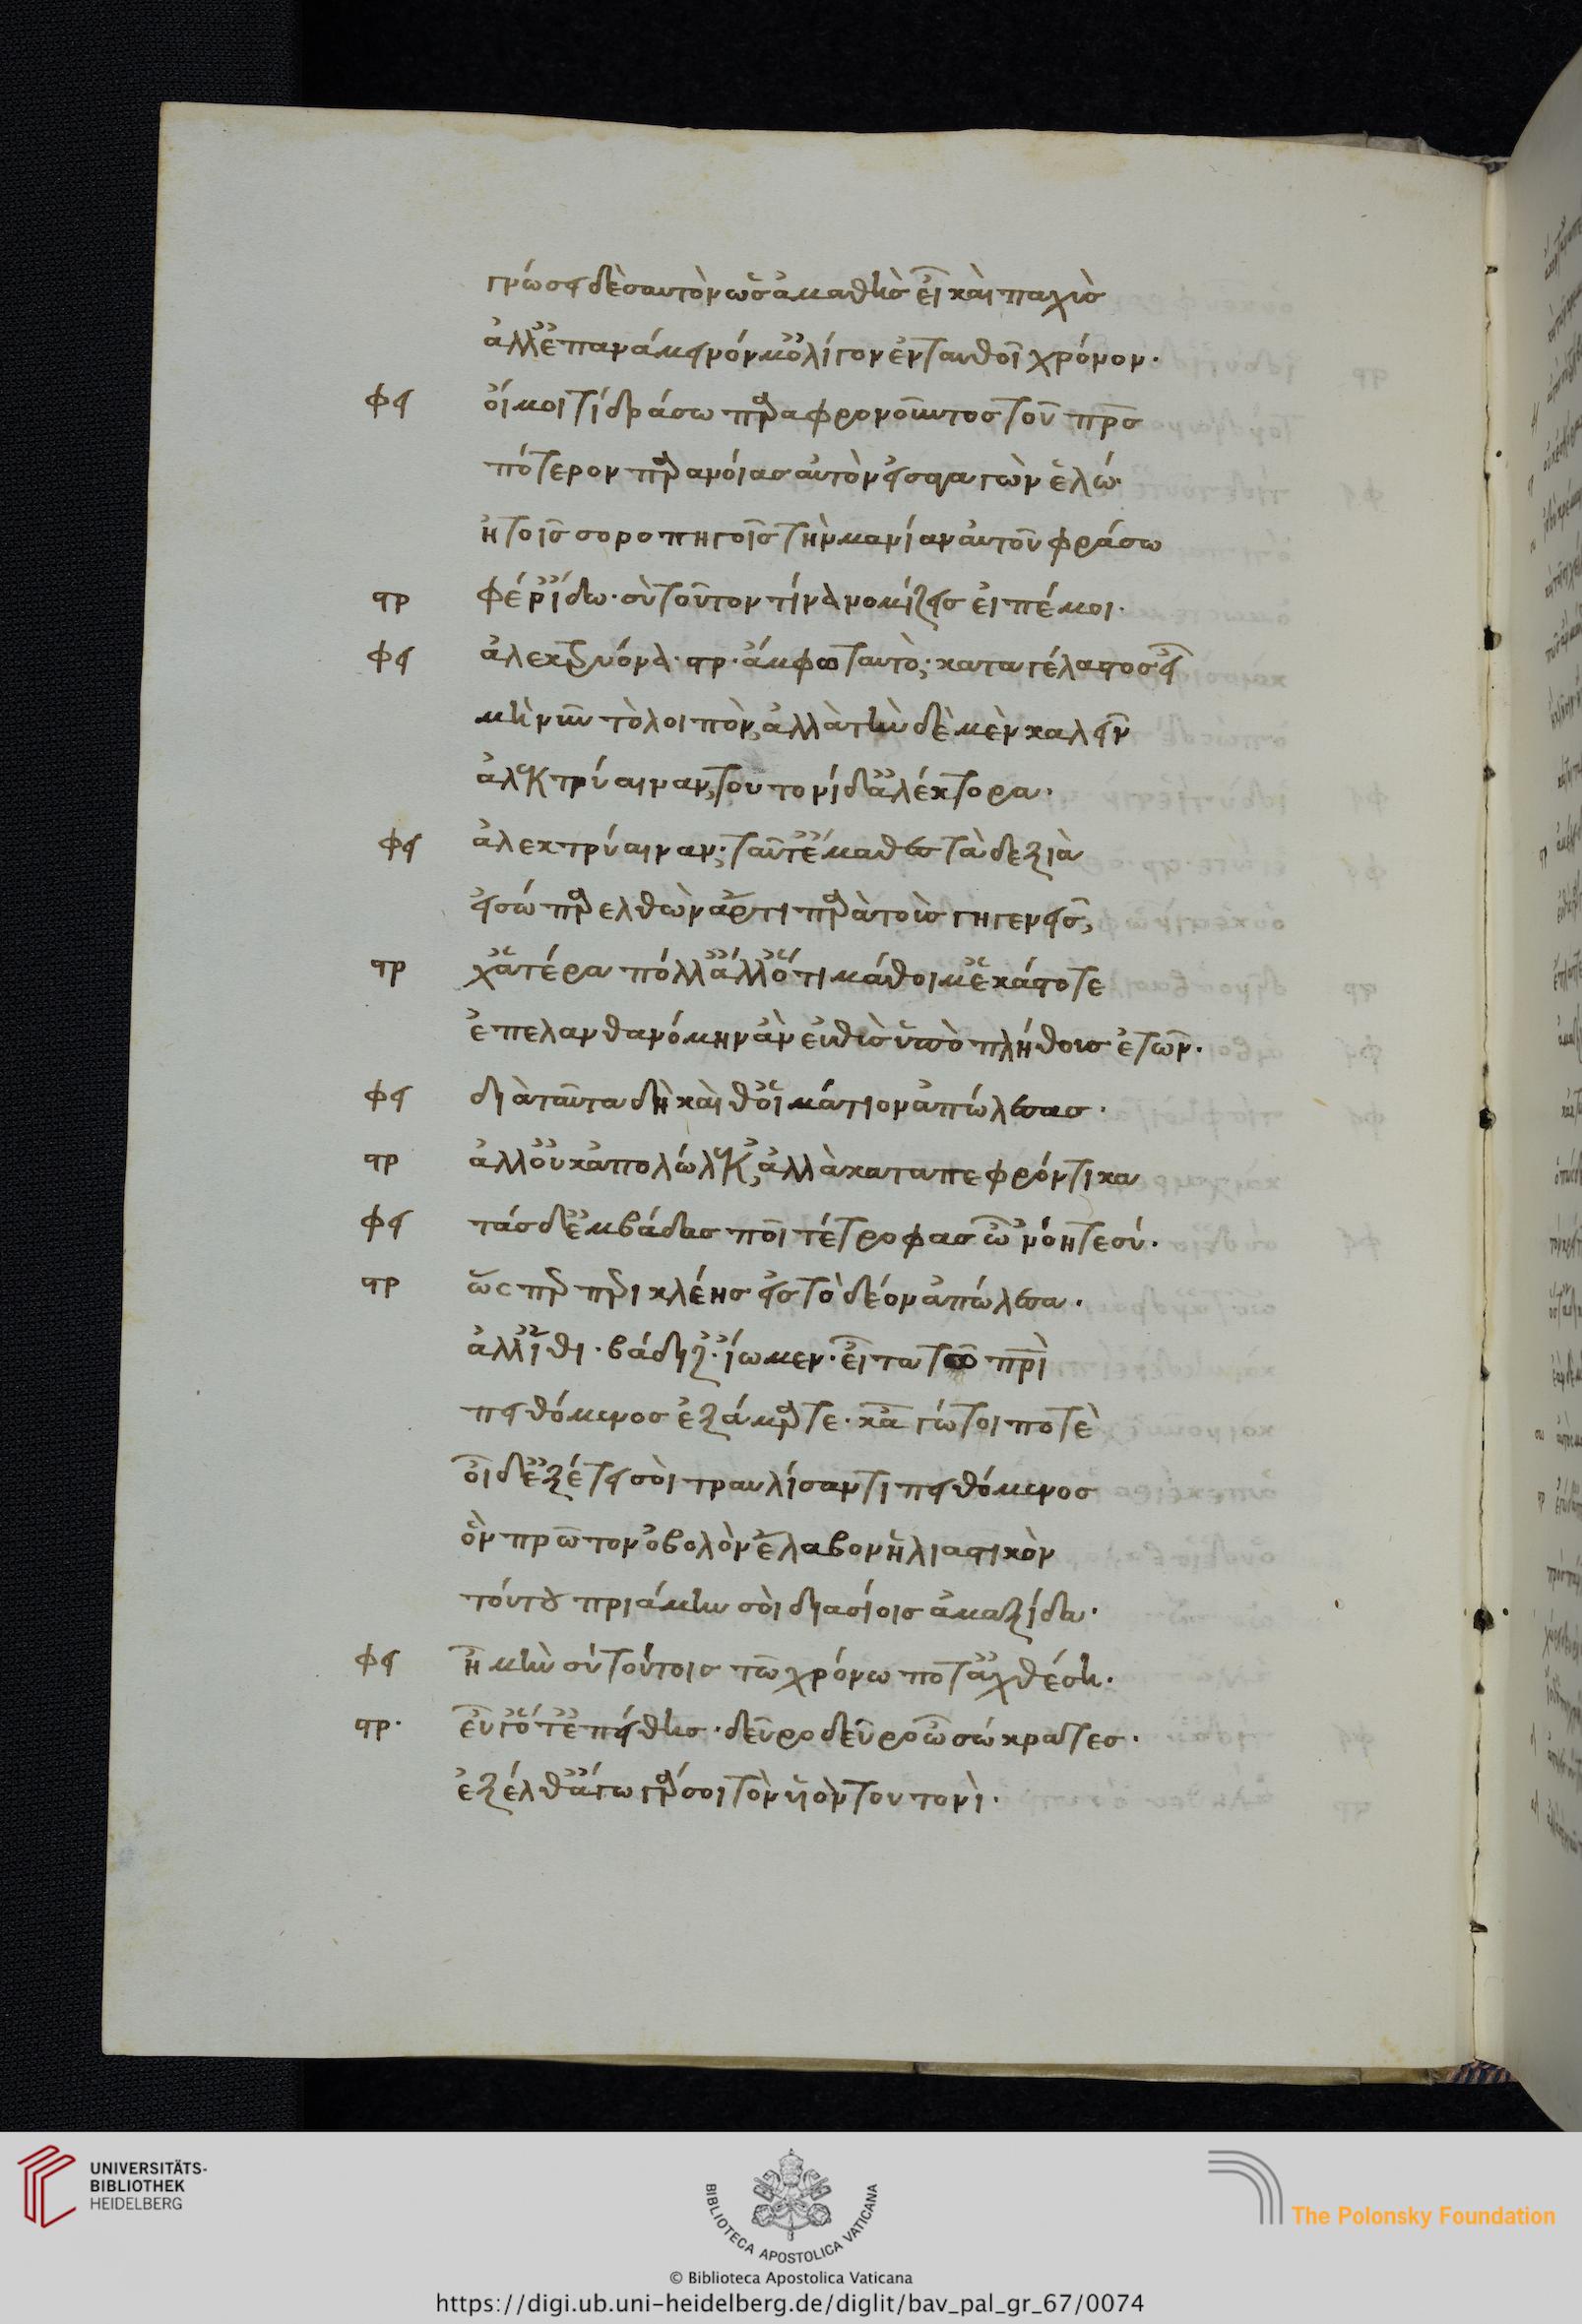 γνώσει δὲ σαυτὸν ὡς ἀμαθὴς εἶ καὶ παχὺς
ἀλλ' ἐπανάμεινόν μ' ὀλίγον ἐνταυθοῖ χρόνον·
φει οἴμοι τί δράσω παραφρονοῦντος τοῦ πρς
πότερον παρανοίας αὐτὸν εἰσαγαγὼν ἕλω·
ἢ τοῖς σοροπηγοῖς τὴν μανίαν αὐτοῦ φράσω
στρ φέρ' ἴδω· σὺ τοῦτον τίνα νομίζεις εἰπέ μοι·
φει ἀλεκτρυόνα· στρ· ἄμφω ταυτό; καταγέλαστος εἶ
μὴ νῦν τὸ λοιπὸν, ἀλλὰ τὴν δὲ μὲν καλεῖν
ἀλεκτρύαιναν, τουτονὶ δ' ἀλέκτορα·
φει ἀλεκτρύαιναν; ταῦτ' ἔμαθες τὰ δεξιὰ
εἴσω παρελθὼν ἄρτι παρὰ τοὺς γηγενεῖς;
στρ χἄτερα πόλλ' ἀλλ' ὅτι μάθοιμ' ἑκάστοτε
ἐπελανθανόμην ἂν εὐθὺς ὑπὸ πλήθους ἐτῶν·
φει διὰ ταῦτα δὴ καὶ θοἰμάτιον ἀπώλεσας·
στρ ἀλλ' οὐκ ἀπολώλεκ', ἀλλὰ καταπεφρόντικα
φει τάς δ' ἐμβάδας ποῖ τέτροφας ὦ 'νόητε σύ·
στρ ὥσπερ περικλέης εἰς τὸ δέον ἀπώλεσα·
ἀλλ' ἴθι· βάδιζ'· ἴωμεν· εἶτα τῶ πρὶ
πειθόμενος ἐξάμαρτε· κἀγώ τοι ποτὲ
οἶδ' ἐξέτει σοὶ τραυλίσαντι πειθόμενος
ὃν πρῶτον ὀβολὸν ἔλαβον ἡλιαστικὸν
τούτου πριάμην σοὶ διασίοις ἁμαξίδα·
φει ἦ μὴν σὺ τούτοις τῶ χρόνω ποτ' ἀχθέση·
στρ· εὖ γ' ὅτ' ἐπείθης· δεῦρο δεῦρο ὦ σώκρατες·
ἔξελθ' ἄγω γάρ σοι τὸν υἱὸν τουτονὶ·
UNIVERSITÄTS-
BIBLIOTHEK
HEIDELBERG
BIBLIOTECA APOSTOLICA VATICANA
The Polonsky Foundation
© Biblioteca Apostolica Vaticana
https://digi.ub.uni-heidelberg.de/diglit/bav_pal_gr_67/0074